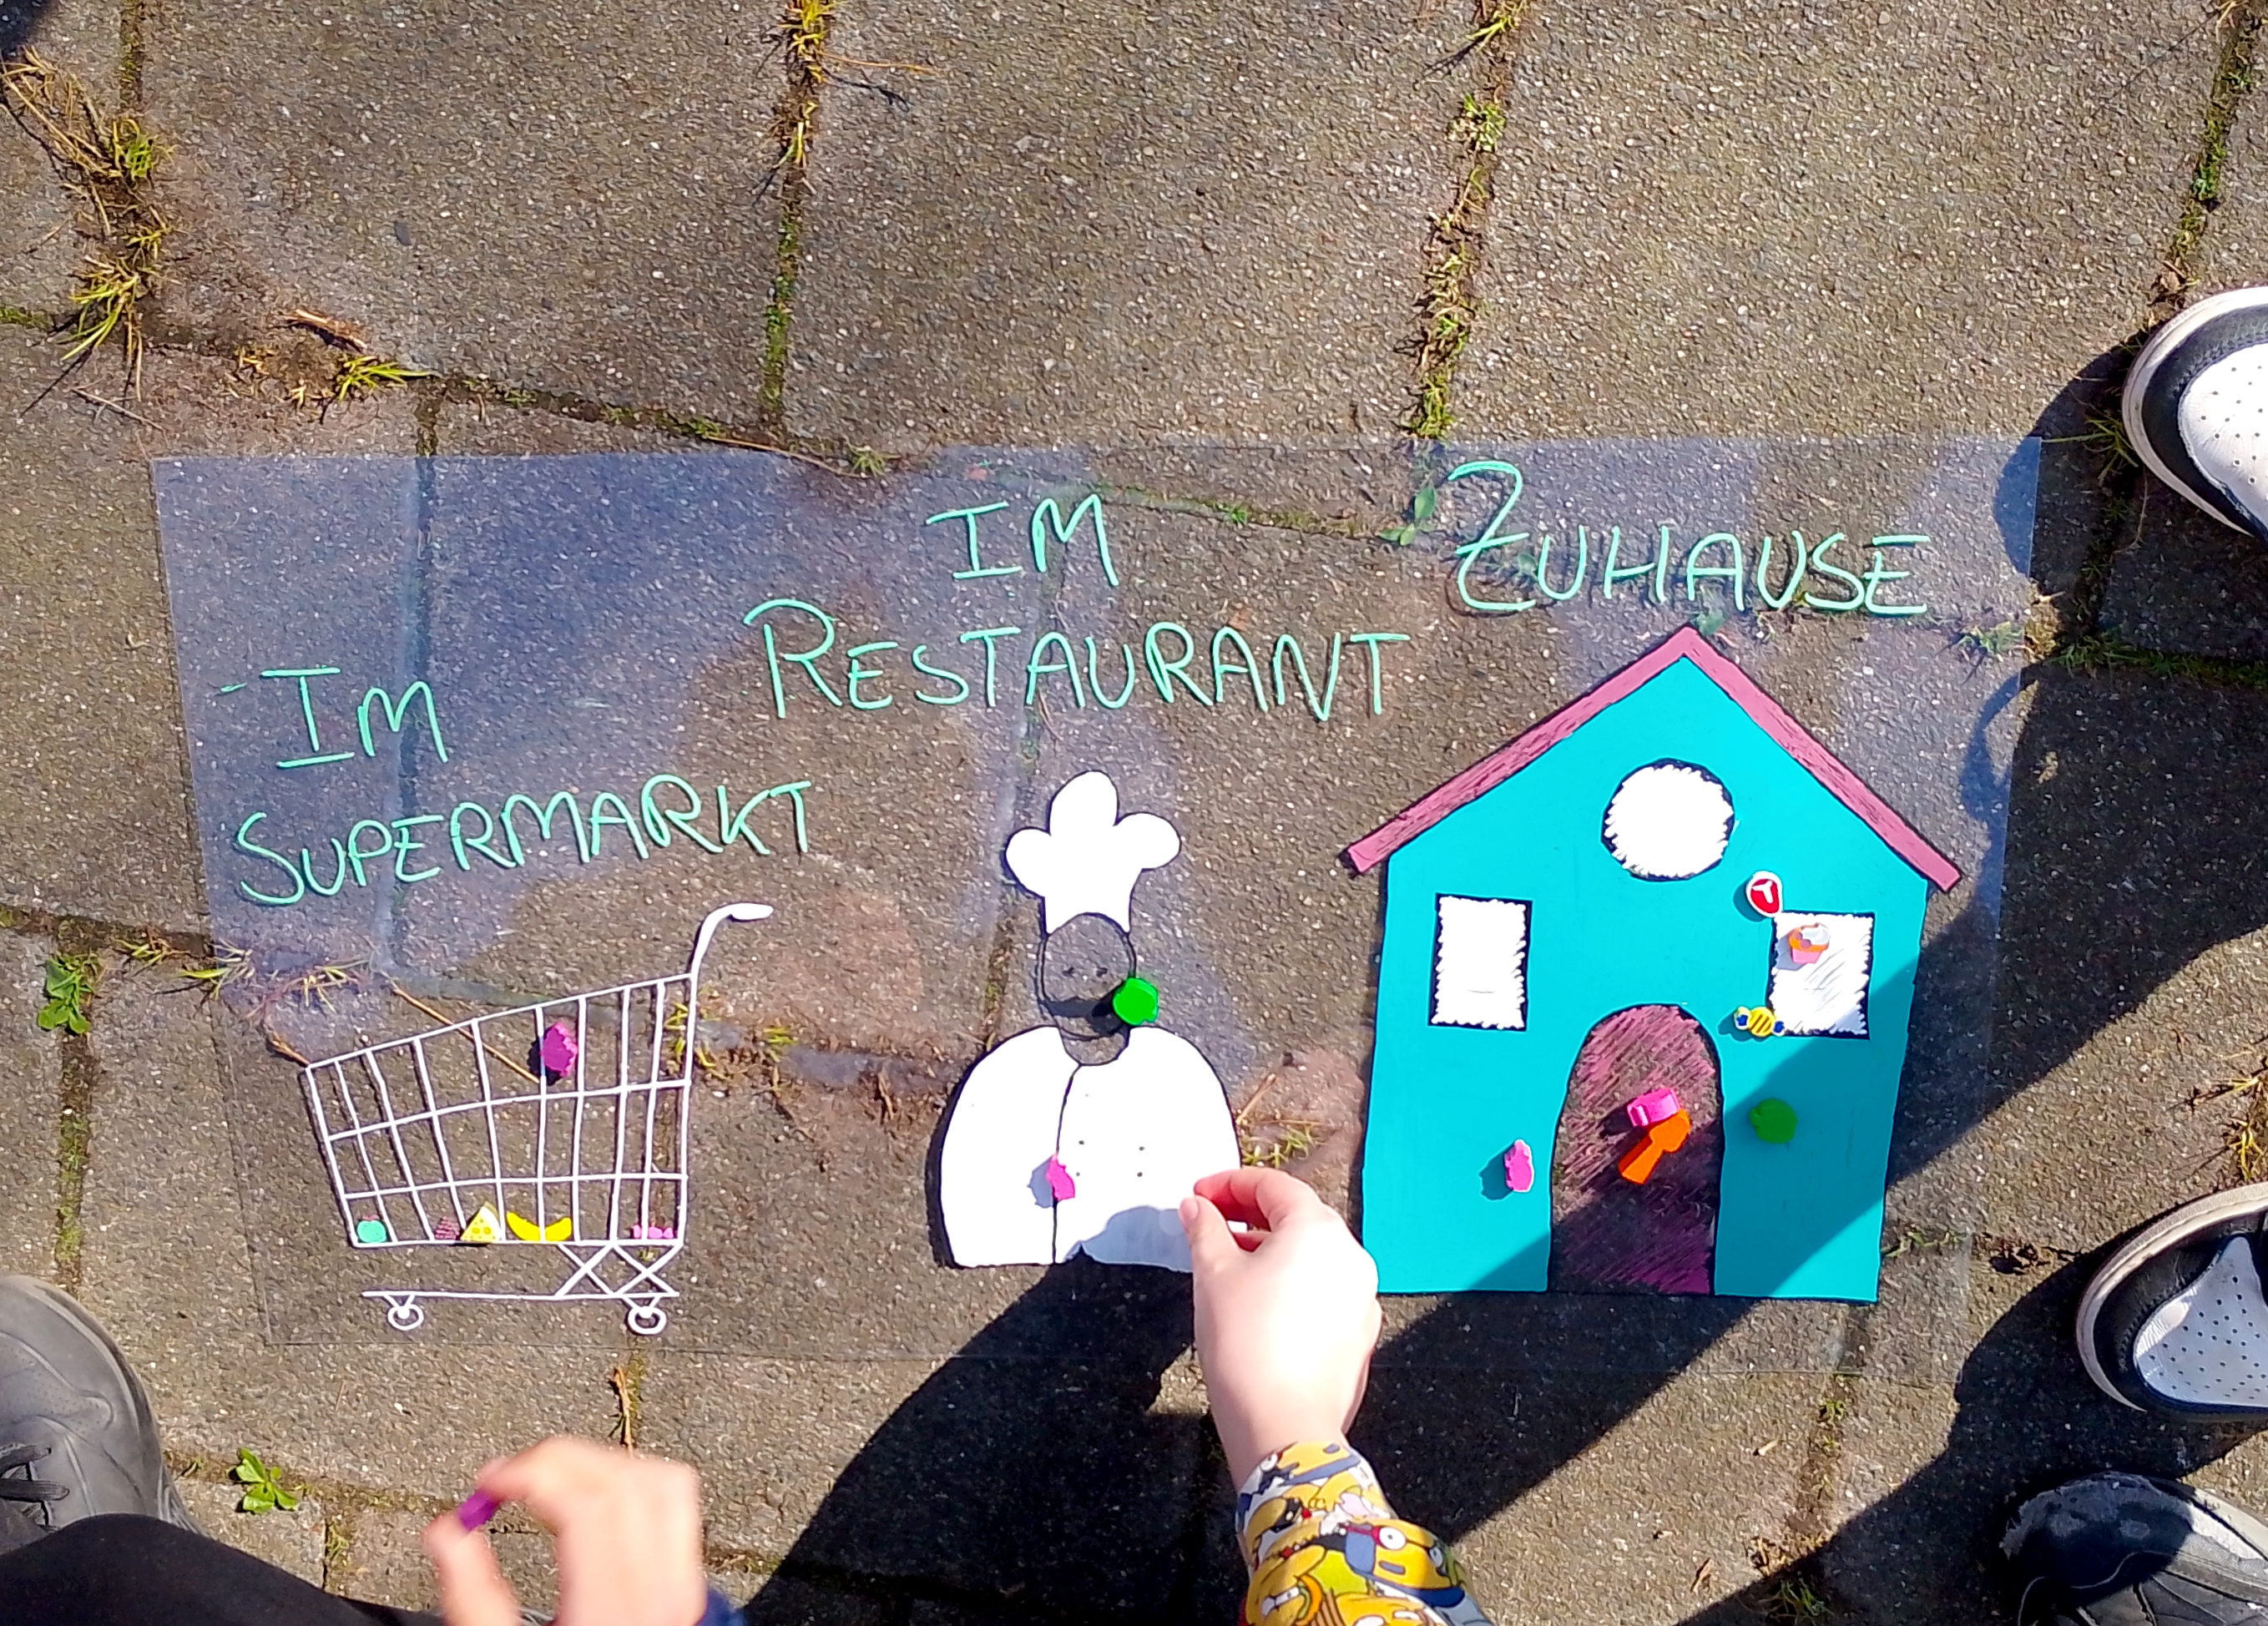 IM
SUPERMARKT
IM
RESTAURANT
ZUHAUSE